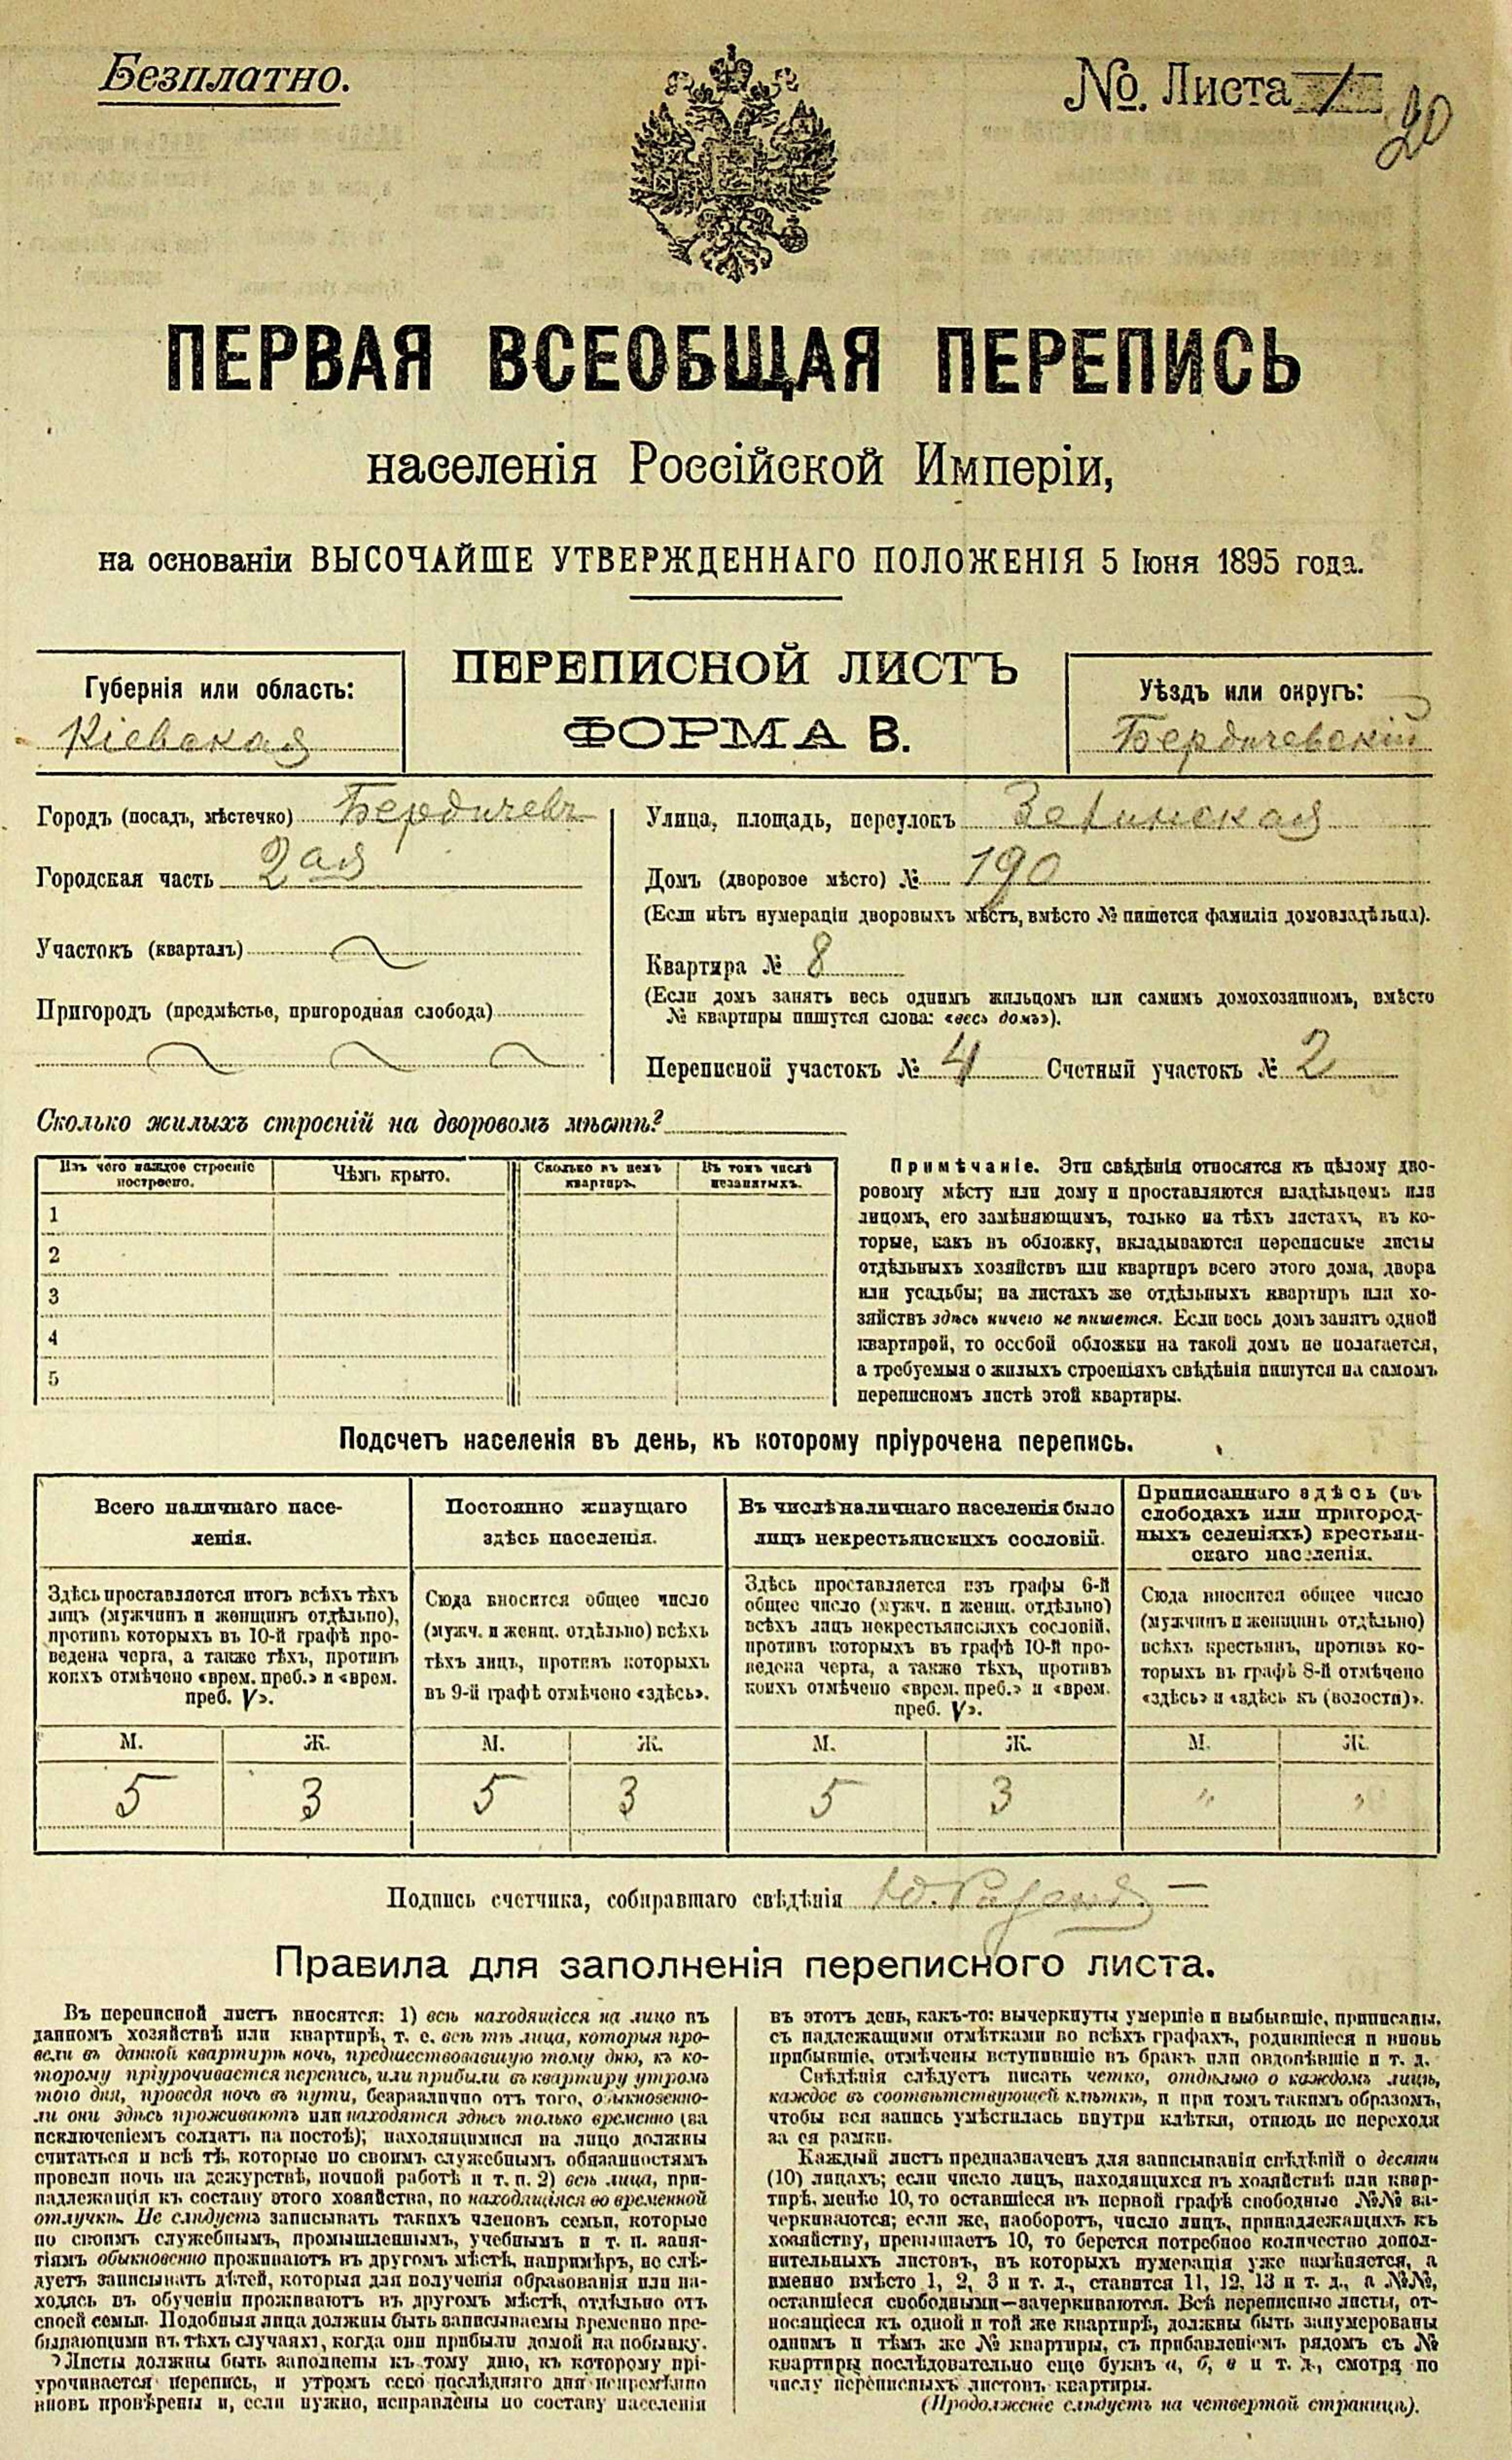 Безплатно.
№. Листа 1
20
ПЕРВАЯ ВСЕОБЩАЯ ПЕРЕПИСЬ
населенія Россійской Имперіи,
на основаніи ВЫСОЧАЙШЕ УТВЕРЖДЕННАГО ПОЛОЖЕНІЯ 5 Іюня 1895 года.
ПЕРЕПИСНОЙ ЛИСТЪ
ФОРМА В.
Губернія или область:
Кіевская
Уѣздъ или округъ:
Бердичевскій
Городъ (посадъ, мѣстечко) Бердичевъ
Городская часть 2ая
Участокъ (кварталъ)
Пригородъ (предмѣстье, пригородная слобода)
Улица, площадь, переулокъ
Домъ (дворовое мѣсто) № 190
(Если нѣтъ нумераціи дворовыхъ мѣстъ, вмѣсто № пишется фамилія домовладѣльца).
Квартира № 8
(Если домъ занятъ весь однимъ жильцомъ или самимъ домохозяиномъ, вмѣсто
№ квартиры пишутся слова: «весь домъ»).
Переписной участокъ № 4 Счетный участокъ № 2
Сколько жилыхъ строеній на дворовомъ мѣстѣ?
Изъ чего каждое строеніе
построено.
Чѣмъ крыто.
Сколько въ немъ
квартиръ.
Въ томъ числѣ
незанятыхъ.
1
2
3
4
5
Примѣчаніе. Эти свѣдѣнія относятся къ цѣлому дво-
ровому мѣсту или дому и проставляются владѣльцемъ или
лицомъ, его замѣняющимъ, только на тѣхъ листахъ, въ ко-
торые, какъ въ обложку, вкладываются переписные листы
отдѣльныхъ хозяйствъ или квартиръ всего этого дома, двора
или усадьбы; на листахъ же отдѣльныхъ квартиръ или хо-
зяйствъ здѣсь ничего не пишется. Если весь домъ занятъ одной
квартирой, то особой обложки на такой домъ не полагается,
а требуемыя о жилыхъ строеніяхъ свѣдѣнія пишутся на самомъ
переписномъ листѣ этой квартиры.
Подсчетъ населенія въ день, къ которому пріурочена перепись.
Всего наличнаго насе-
ленія.
Здѣсь проставляется итогъ всѣхъ тѣхъ
лицъ (мужчинъ и женщинъ отдѣльно),
противъ которыхъ въ 10-й графѣ про-
ведена черта, а также тѣхъ, противъ
коихъ отмѣчено «врем. преб.» и «врем.
преб. V».
Постоянно живущаго
здѣсь населенія.
Сюда вносится общее число
(мужч. и женщ. отдѣльно) всѣхъ
тѣхъ лицъ, противъ которыхъ
въ 9-й графѣ отмѣчено «здѣсь».
Въ числѣ наличнаго населенія было
лицъ некрестьянскихъ сословій.
Здѣсь проставляется изъ графы 6-й
общее число (мужч. и женщ. отдѣльно)
всѣхъ лицъ некрестьянскихъ сословій,
противъ которыхъ въ графѣ 10-й про-
ведена черта, а также тѣхъ, противъ
коихъ отмѣчено «врем. преб.» и «врем.
преб. V».
Приписаннаго здѣсь (въ
слободахъ или пригород-
ныхъ селеніяхъ) крестьян-
скаго населенія.
Сюда вносится общее число
(мужчинъ и женщинъ отдѣльно)
всѣхъ крестьянъ, противъ ко-
торыхъ въ графѣ 8-й отмѣчено
«здѣсь» и «здѣсь къ (волости)».
М. Ж. М. Ж. М. Ж. М. Ж.
5 3 5 3 5 3 " "
Подпись счетчика, собиравшаго свѣдѣнія
Правила для заполненія переписного листа.
Въ переписной листъ вносятся: 1) всѣ находящіеся на лицо въ
данномъ хозяйствѣ или квартирѣ, т. е. всѣ тѣ лица, которыя про-
вели въ данной квартирѣ ночь, предшествовавшую тому дню, къ ко-
торому пріурочивается перепись, или прибыли въ квартиру утромъ
того дня, проведя ночь въ пути, безразлично отъ того, обыкновенно-
ли они здѣсь проживаютъ или находятся здѣсь только временно (за
исключеніемъ солдатъ на постоѣ); находящимися на лицо должны
считаться и всѣ тѣ, которые по своимъ служебнымъ обязанностямъ
провели ночь на дежурствѣ, ночной работѣ и т. п. 2) всѣ лица, при-
надлежащія къ составу этого хозяйства, но находящіяся во временной
отлучкѣ. Не слѣдуетъ записывать такихъ членовъ семьи, которые
по своимъ служебнымъ, промышленнымъ, учебнымъ и т. п. заня-
тіямъ обыкновенно проживаютъ въ другомъ мѣстѣ, напримѣръ, не слѣ-
дуетъ записывать дѣтей, которыя для полученія образованія или на-
ходясь въ обученіи проживаютъ въ другомъ мѣстѣ, отдѣльно отъ
своей семьи. Подобныя лица должны быть записываемы временно пре-
бывающими въ тѣхъ случаяхъ, когда они прибыли домой на побывку.
Листы должны быть заполнены къ тому дню, къ которому прі-
урочивается перепись, и утромъ сего послѣдняго дня непремѣнно
вновь провѣрены и, если нужно, исправлены по составу населенія
въ этотъ день, какъ-то: вычеркнуты умершіе и выбывшіе, приписаны,
съ надлежащими отмѣтками во всѣхъ графахъ, родившіеся и вновь
прибывшіе, отмѣчены вступившіе въ бракъ или овдовѣвшіе и т. д.
Свѣдѣнія слѣдуетъ писать четко, отдѣльно о каждомъ лицѣ,
каждое въ соотвѣтствующей клѣткѣ, и при томъ такимъ образомъ,
чтобы вся запись умѣстилась внутри клѣтки, отнюдь не переходя
за ея рамки.
Каждый листъ предназначенъ для записыванія свѣдѣній о десяти
(10) лицахъ; если число лицъ, находящихся въ хозяйствѣ или квар-
тирѣ, менѣе 10, то оставшіеся въ первой графѣ свободные №№ за-
черкиваются; если же, наоборотъ, число лицъ, принадлежащихъ къ
хозяйству, превышаетъ 10, то берется потребное количество допол-
нительныхъ листовъ, въ которыхъ нумерація уже измѣняется, а
именно вмѣсто 1, 2, 3 и т. д., ставится 11, 12, 13 и т. д., а №№,
оставшіеся свободными—зачеркиваются. Всѣ переписные листы, от-
носящіеся къ одной и той же квартирѣ, должны быть занумерованы
однимъ и тѣмъ же № квартиры, съ прибавленіемъ рядомъ съ №
квартиры послѣдовательно еще буквъ а, б, в и т. д., смотря по
числу переписныхъ листовъ квартиры.
(Продолженіе слѣдуетъ на четвертой страницѣ).